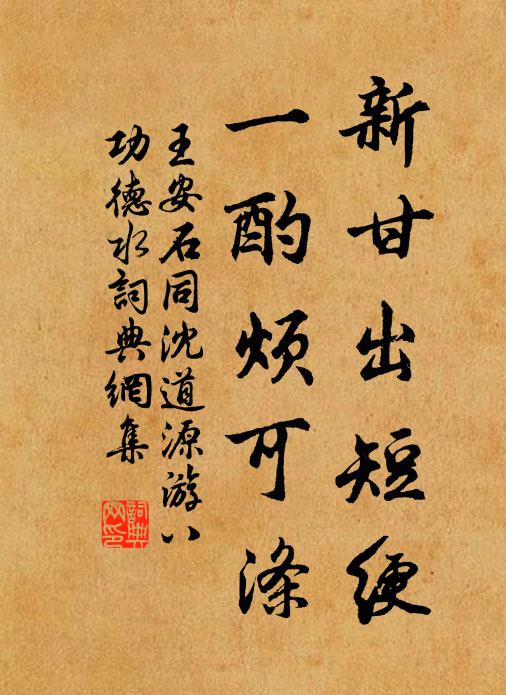 新甘出短綆
一酌烦可滌
王安石同沈道源游八
功德水詞典網集
詞典
网印